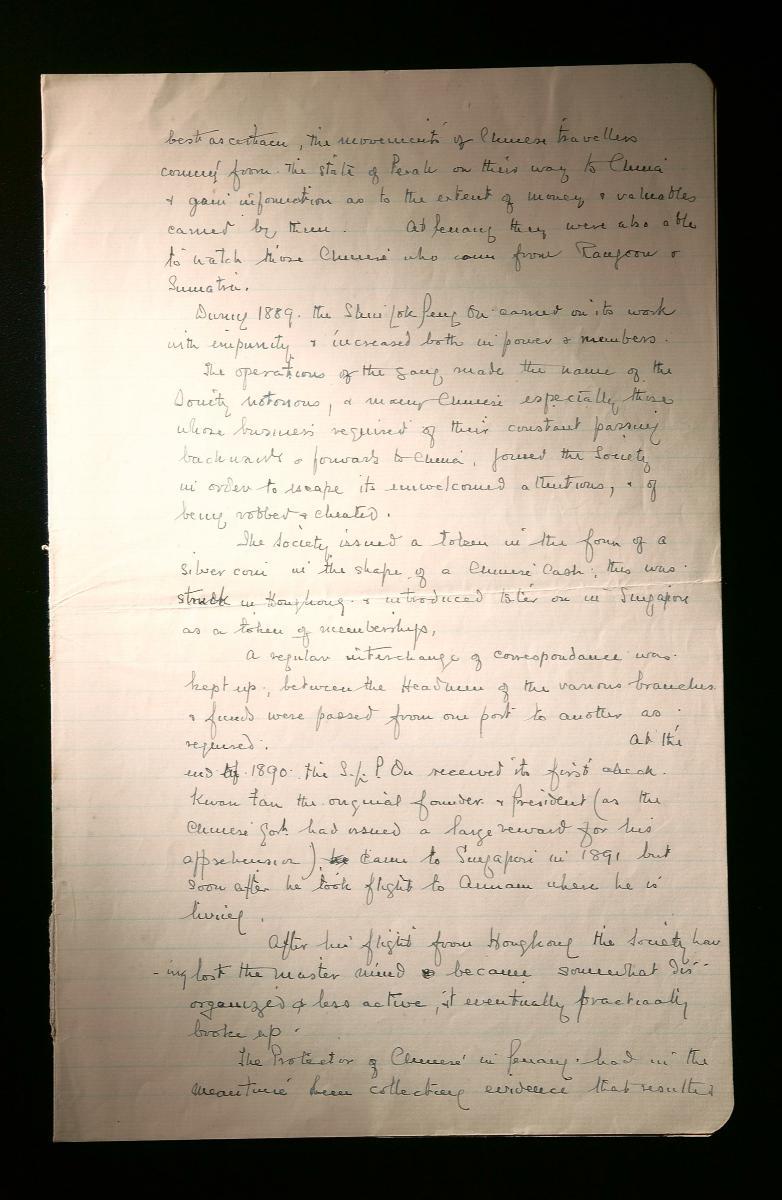 best ascertain, the movements of Chinese travellers
coming from the state of Perak on their way to China
& gain information as to the extent of money & valuables
carried by them. At Penang they were also able
to watch those Chinese who came from Rangoon &
Sumatra.
During 1889. the Shui Lok Peng On carried on its work
with impunity & increased both in power & members.
The operations of the gang made the name of the
Society notorious, & many Chinese especially those
whose business required of their constant passing
backwards & forwards to China, joined the Society
in order to escape its unwelcomed attentions, & of
being robbed & cheated.
The Society issued a token in the form of a
silver coin in the shape of a Chinese Cash; this was
struck in Hongkong & introduced later on in Singapore
as a token of membership,
A regular interchange of correspondance was
kept up, between the Headmen of the various branches
& funds were passed from one port to another as
required. At the
end of 1890 the S. P On received its first check.
Kwan Fan the original founder & President (as the
Chinese Govt. had issued a large reward for his
apprehension) came to Singapore in 1891 but
soon after he took flight to Annam where he is
living.
After his flight from Hongkong the Society hav
-ing lost the master mind became somewhat dis-
organized & less active, it eventually practically
broke up.
The Protector of Chinese in Penang had in the
meantime been collecting evidence that resulted